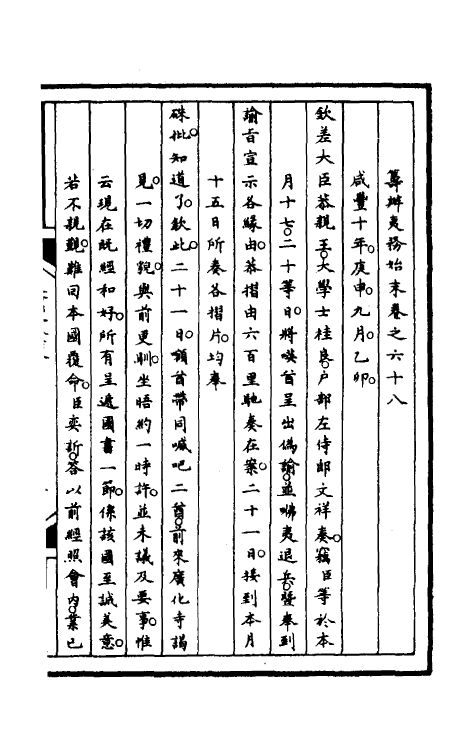 籌辦夷務始末卷之六十八
咸豐十年。庚申。九月。乙卯。
欽差大臣恭親王。大學士桂良。戶部左侍郎文祥奏。竊臣等於本
月十七。二十等日。將嘆酋呈出偽諭。並咈夷退兵。鹽奉到
諭旨宣示各緣由。恭摺由六百里馳奏在案。二十一日。接到本月
十五日所奏各摺片。均奉
硃批。知道了。欽此。二十一日。額酋帶同喊吧二酋。前來廣化寺謁
見。一切禮貌。與前更馴。坐晤約一時許。並未議及要事。惟
云現在既經和好。所有呈遞國書一節。係該國至誠美意。
若不親覿。難回本國覆命。臣奕訢。答以前經照會內。業已